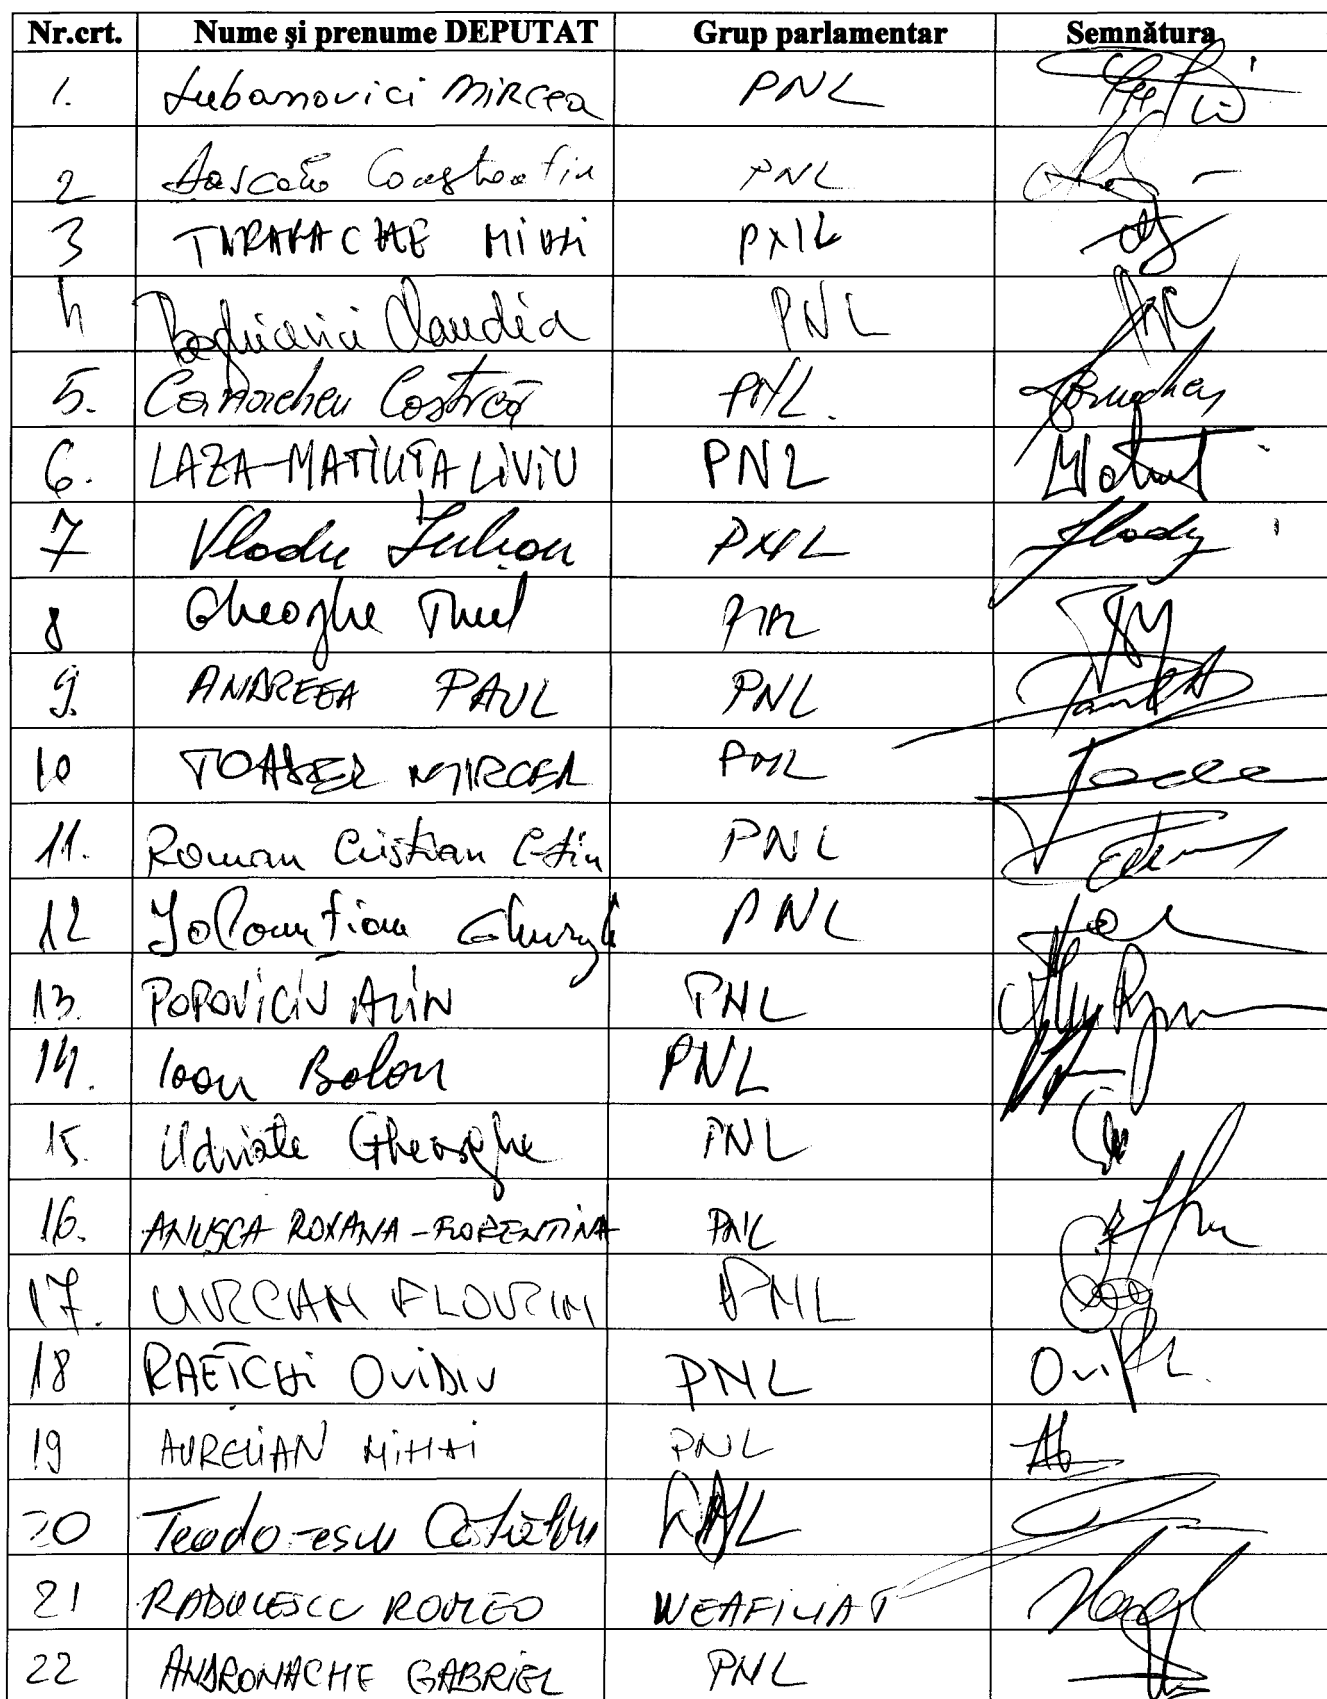 Nr.crt. Nume și prenume DEPUTAT Grup parlamentar Semnătura
1. Lubanovici Mircea PNL
2 Dascălu Constantin PNL
3 TURAFACHE MIHAI PNL
4 Boghicevici Claudia PNL
5. Canacheu Costică PNL.
6. LAZA-MATIUȚA LIVIU PNL
7 Vladu Iulian PNL
8 Gheorghe Tinel PNL
9. ANDREEA PAUL PNL
10 TOADER MIRCEA PNL
11. Roman Cristian C-tin PNL
12 Ialomițianu Gheorghe PNL
13. POPOVICIU ALIN PNL
14. Ioan Balan PNL
15. Udriște Gheorghe PNL
16. ANUȘCA ROXANA-FLORENTINA PNL
17. URCAN FLORIN PNL
18 RAEȚCHI OVIDIU PNL Ovi
19 AURELIAN MIHAI PNL
20 Teodorescu Cătălin PNL
21 RADULESCU ROMEO NEAFILIAT
22 ANDRONACHE GABRIEL PNL